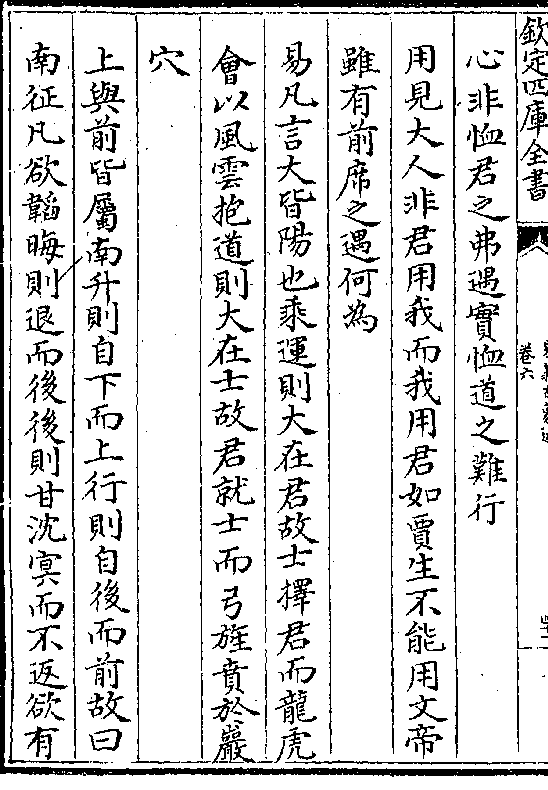 欽定四庫全書
卷六
心非恤君之弗遇實恤道之難行
用見大人非君用我而我用君如賈生不能用文帝
雖有前席之遇何為
易凡言大皆陽也乘運則大在君故士擇君而龍虎
會以風雲抱道則大在士故君就士而弓旌賁於巖
穴
上與前皆屬南升則自下而上行則自後而前故曰
南征凡欲韜晦則退而後後則甘沈冥而不返欲有